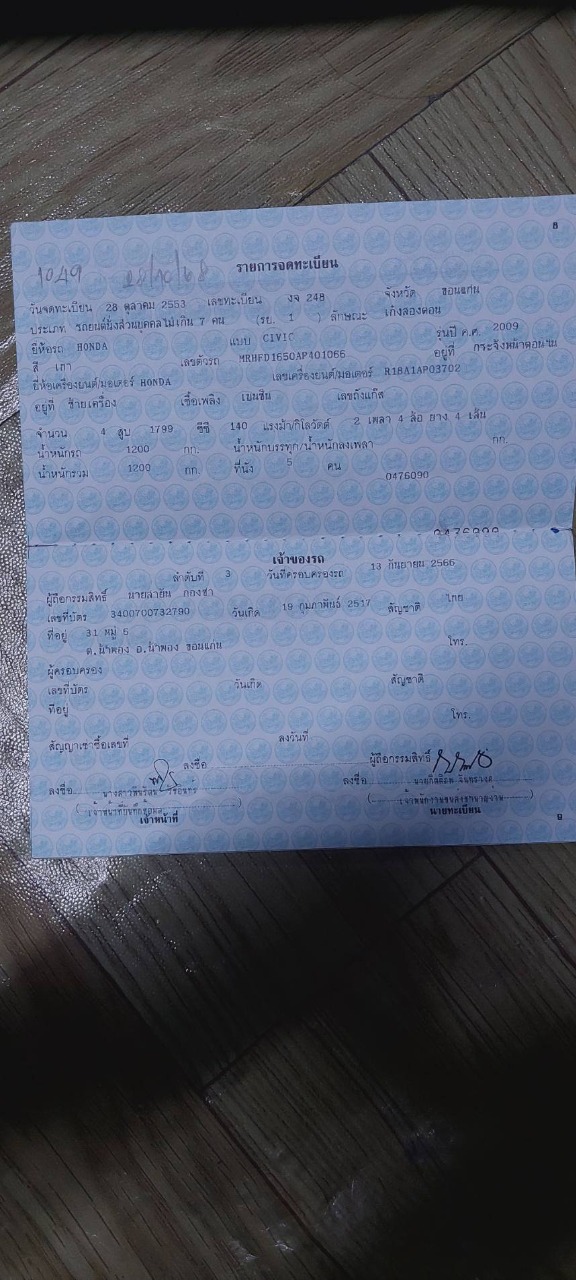 8
1049 28/10/68
รายการจดทะเบียน
วันจดทะเบียน 28 ตุลาคม 2553 เลขทะเบียน งจ 248 จังหวัด ขอนแก่น
ประเภท รถยนต์นั่งส่วนบุคคลไม่เกิน 7 คน (รย. 1 ) ลักษณะ เก๋งสองตอน
ยี่ห้อรถ HONDA แบบ CIVIC รุ่นปี ค.ศ. 2009
สี เทา เลขตัวรถ MRHFD1650AP401066 อยู่ที่ กระจังหน้าตอนใน
ยี่ห้อเครื่องยนต์/มอเตอร์ HONDA เลขเครื่องยนต์/มอเตอร์ R18A1AP03702
อยู่ที่ ซ้ายเครื่อง เชื้อเพลิง เบนซิน เลขถังแก๊ส
จำนวน 4 สูบ 1799 ซีซี 140 แรงม้า/กิโลวัตต์ 2 เพลา 4 ล้อ ยาง 4 เส้น
น้ำหนักรถ 1200 กก. น้ำหนักบรรทุก/น้ำหนักลงเพลา กก.
น้ำหนักรวม 1200 กก. ที่นั่ง 5 คน
0476090
เจ้าของรถ
ลำดับที่ 3 วันที่ครอบครองรถ 13 กันยายน 2566
ผู้ถือกรรมสิทธิ์ นายลายัน กองชา
เลขที่บัตร 3400700732790 วันเกิด 19 กุมภาพันธ์ 2517 สัญชาติ ไทย
ที่อยู่ 31 หมู่ 5
ต.น้ำพอง อ.น้ำพอง ขอนแก่น โทร.
ผู้ครอบครอง
เลขที่บัตร วันเกิด สัญชาติ
ที่อยู่
โทร.
สัญญาเช่าซื้อเลขที่ ลงวันที่
ลงชื่อ ผู้ถือกรรมสิทธิ์
ลงชื่อ ลงชื่อ
เจ้าหน้าที่ นายทะเบียน